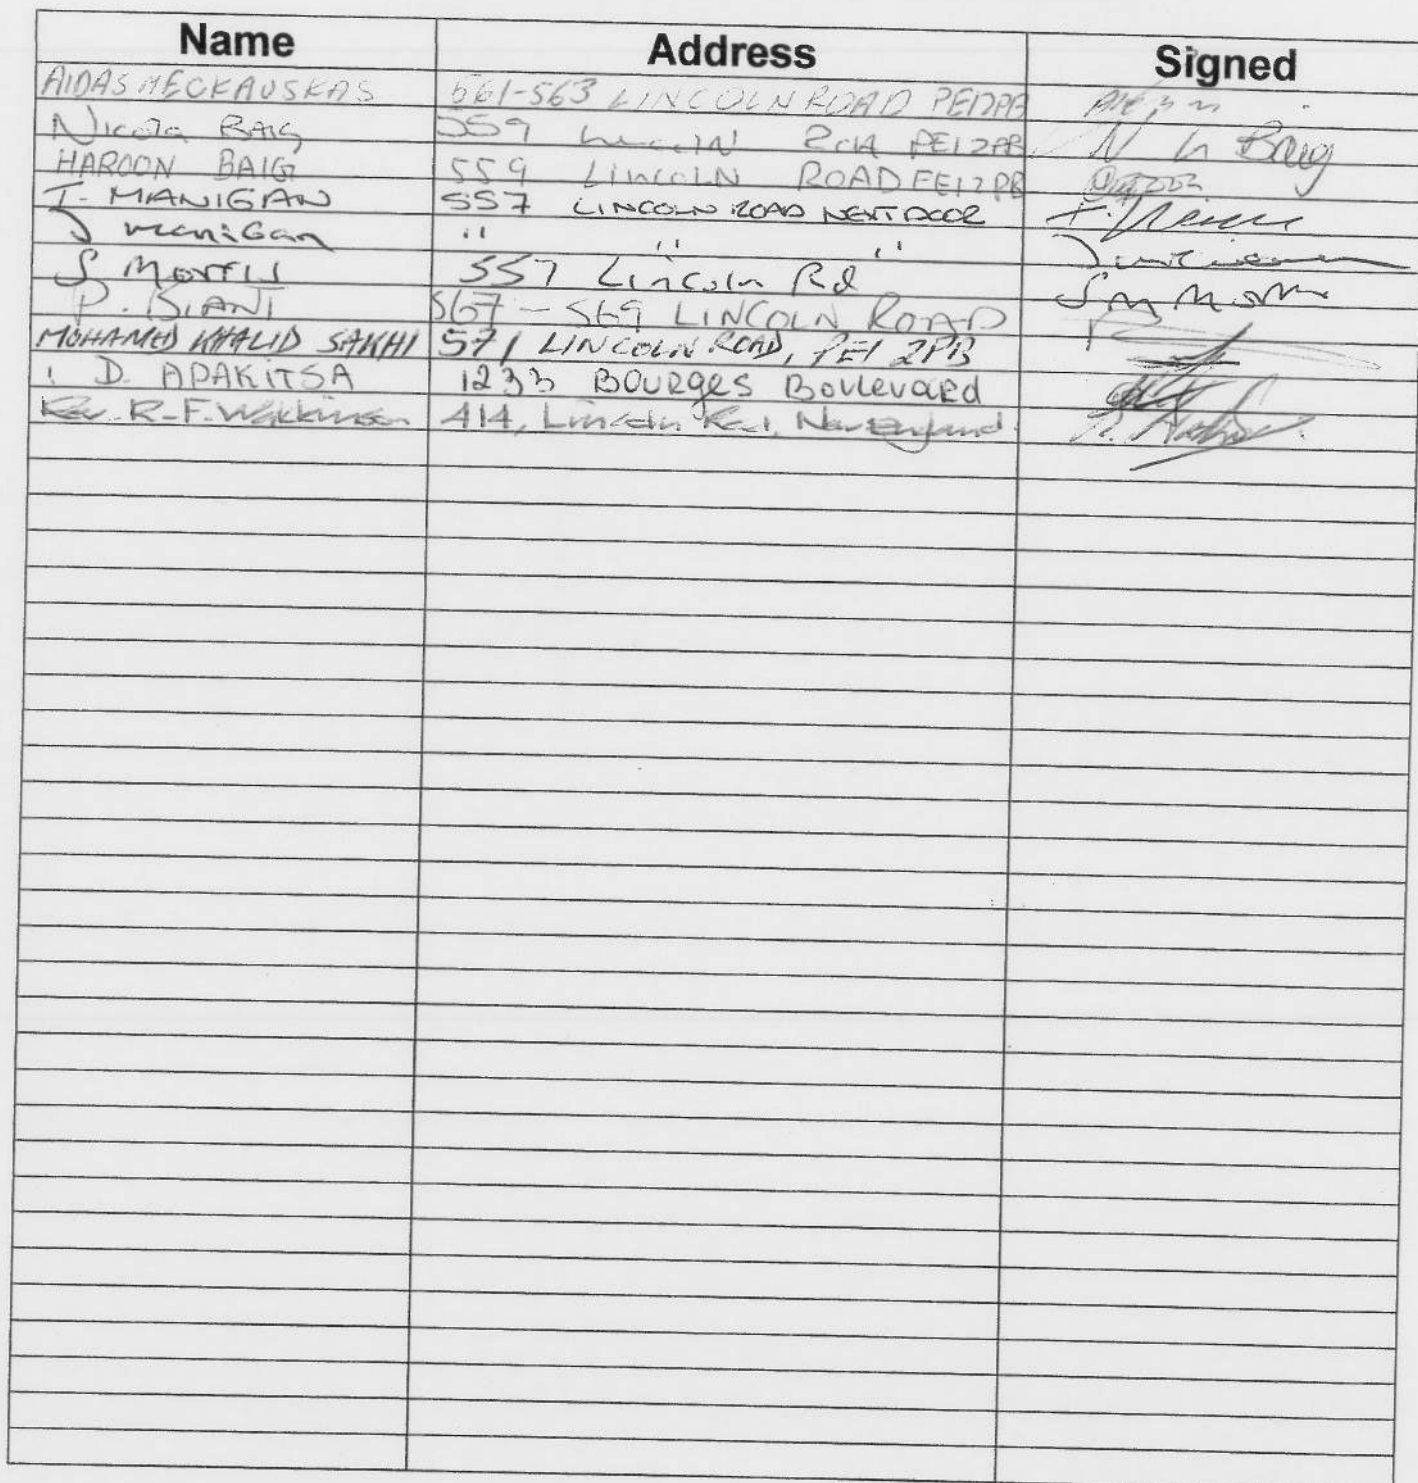 Name Address Signed
AIDAS MECKAUSKAS 561-563 LINCOLN ROAD PE12PB
Nicola BAIG 559 PE12PB N Baig
HAROON BAIG 559 LINCOLN ROAD PE12PB
T. MANIGAN 557 LINCOLN ROAD NEXT DOOR
J manigan " " "
S Morris 557 Lincoln Rd S M Morris
P. KIANI 567-569 LINCOLN ROAD
MOHAMED KHALID SAKHI 571 LINCOLN ROAD, PE1 2PB
D. APAKITSA 1233 BOURGES BOULEVARD
Rev. R-F. Watkinson 414, Lincoln Road, New England